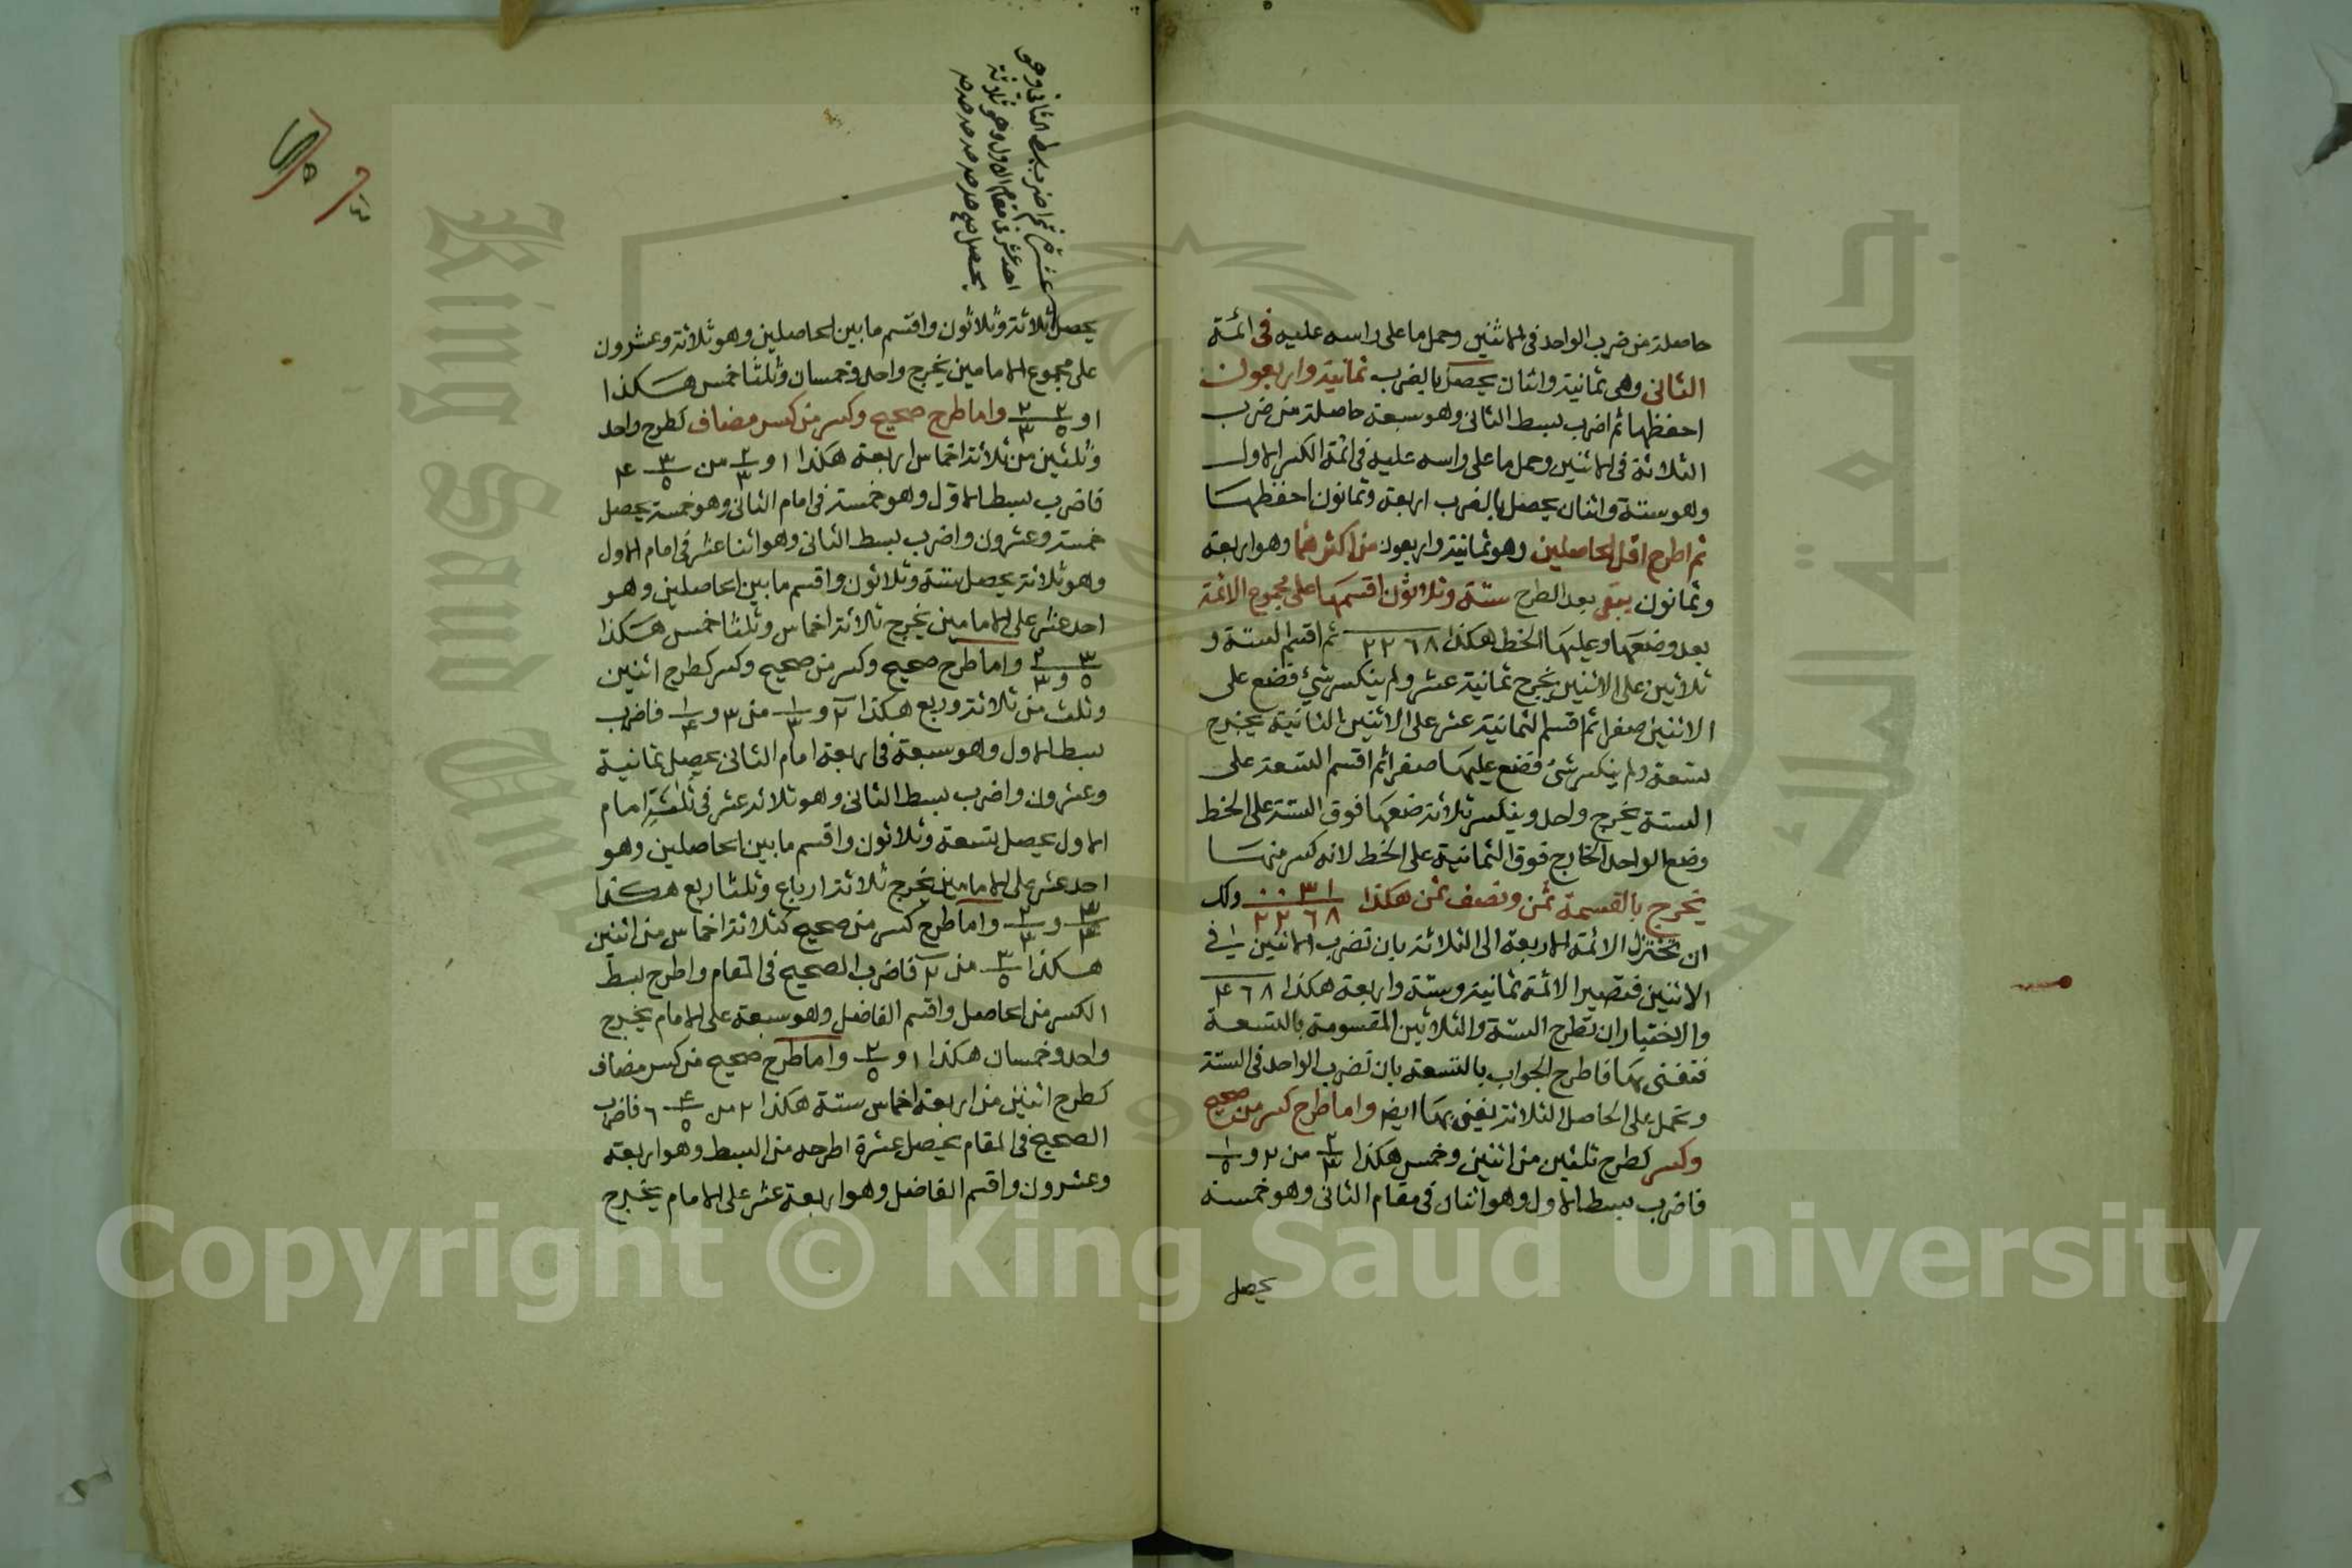 حاصلة من ضرب الواحد فى الاثنين وحمل ما على راسه عليه فى ائمة
الثانى وهى ثمانية واثنان يحصل بالضرب ثمانية واربعون
احفظها ثم اضرب بسط الثانى وهو سبعة حاصلة من ضرب
الثلاثة فى الاثنين وحمل ما على راسه عليه فى ائمة الكسر الاول
وهو ستة واثنان يحصل بالضرب اربعة وثمانون احفظها
ثم اطرح اقل الحاصلين وهو ثمانية واربعون من اكثرهما وهو اربعة
وثمانون يبقى بعد الطرح ستة وثلاثون اقسمها على مجموع الائمة
بعد وضعها وعليها الخط هكذا ٢٢٦٨ ثم اقسم الستة و
ثلاثين على الاثنين يخرج ثمانية عشر ولم ينكسر شئ فضع على
الاثنين صفرا ثم اقسم الثمانية عشر على الاثنين الثانية يخرج
تسعة ولم ينكسر شئ فضع عليها صفرا ثم اقسم التسعة على
الستة يخرج واحد وينكسر ثلاثة ضعها فوق الستة على الخط
وضع الواحد الخارج فوق الثمانية على الخط لانه كسر منها
يخرج بالقسمة ثمن ونصف ثمن هكذا ٠٠٣١ ولك
٢٢٦٨
ان تختزل الائمة الاربعة الى الثلاثة بان تضرب الاثنين فى
الاثنين فتصير الائمة ثمانية وستة واربعة هكذا ٤٦٨
والاختبار ان تطرح الستة والثلاثين المقسومة بالتسعة
فتفنى بها فاطرح الجواب بالتسعة بان تضرب الواحد فى الستة
وتحمل على الحاصل الثلاثة يفنى بها ايضه واما طرح كسر من صحيح
وكسر كطرح ثلثين من اثنين وخمس هكذا ٢/٣ من ٢ و ١/٥
فاضرب بسط الاول وهو اثنان فى مقام الثانى وهو خمسة
يحصل
عشرة ثم اضرب بسط الثانى وهو
احد عشر فى مقام الاول وهو ثلاثة
يحصل صح
يحصل ثلاثة وثلاثون واقسم ما بين الحاصلين وهو ثلاثة وعشرون
على مجموع الامامين يخرج واحد وخمسان وثلثا خمس هكذا
١ و ٢/٥ ٢/٣ واما طرح صحيح وكسر من كسر مضاف كطرح واحد
وثلثين من ثلاثة اخماس اربعة هكذا ١ و ٢/٣ من ٣/٥ ٤
فاضرب بسط الاول وهو خمسة فى امام الثانى وهو خمسة يحصل
خمسة وعشرون واضرب بسط الثانى وهو اثنا عشر فى امام الاول
وهو ثلاثة يحصل ستة وثلاثون واقسم ما بين الحاصلين وهو
احد عشر على الامامين يخرج ثلاثة اخماس وثلثا خمس هكذا
٣/٥ و ٢/٣ واما طرح صحيح وكسر من صحيح وكسر كطرح اثنين
وثلث من ثلاثة وربع هكذا ٢ و ١/٣ من ٣ و ١/٤ فاضرب
بسط الاول وهو سبعة فى اربعة امام الثانى يحصل ثمانية
وعشرون واضرب بسط الثانى وهو ثلاثة عشر فى ثلثة امام
الاول يحصل تسعة وثلاثون واقسم ما بين الحاصلين وهو
احد عشر على الامامين يخرج ثلاثة ارباع وثلثا ربع هكذا
٣/٤ و ٢/٣ واما طرح كسر من صحيح كثلاثة اخماس من اثنين
هكذا ٣/٥ من ٢ فاضرب الصحيح فى المقام واطرح بسط
الكسر من الحاصل واقسم الفاضل وهو سبعة على الامام يخرج
واحد وخمسان هكذا ١ و ٢/٥ واما طرح صحيح من كسر مضاف
كطرح اثنين من اربعة اخماس ستة هكذا ٢ من ٤/٥ ٦ فاضرب
الصحيح فى المقام يحصل عشرة اطرحه من البسط وهو اربعة
وعشرون واقسم الفاضل وهو اربعة عشر على الامام يخرج
Copyright © King Saud University